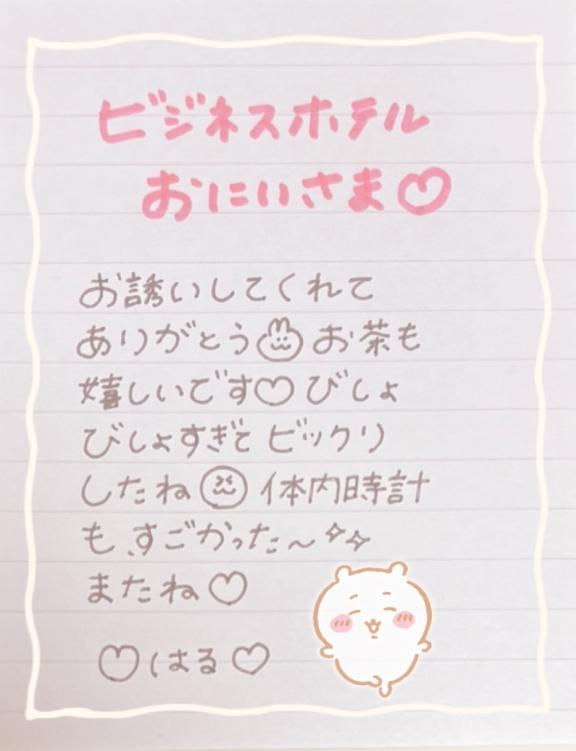 ビジネスホテル
おにいさま♡
お誘いしてくれて
ありがとう お茶も
嬉しいです♡ びしょ
びしょすぎて ビックリ
したね 体内時計
も、すごかった〜✧✧
またね♡
♡はる♡